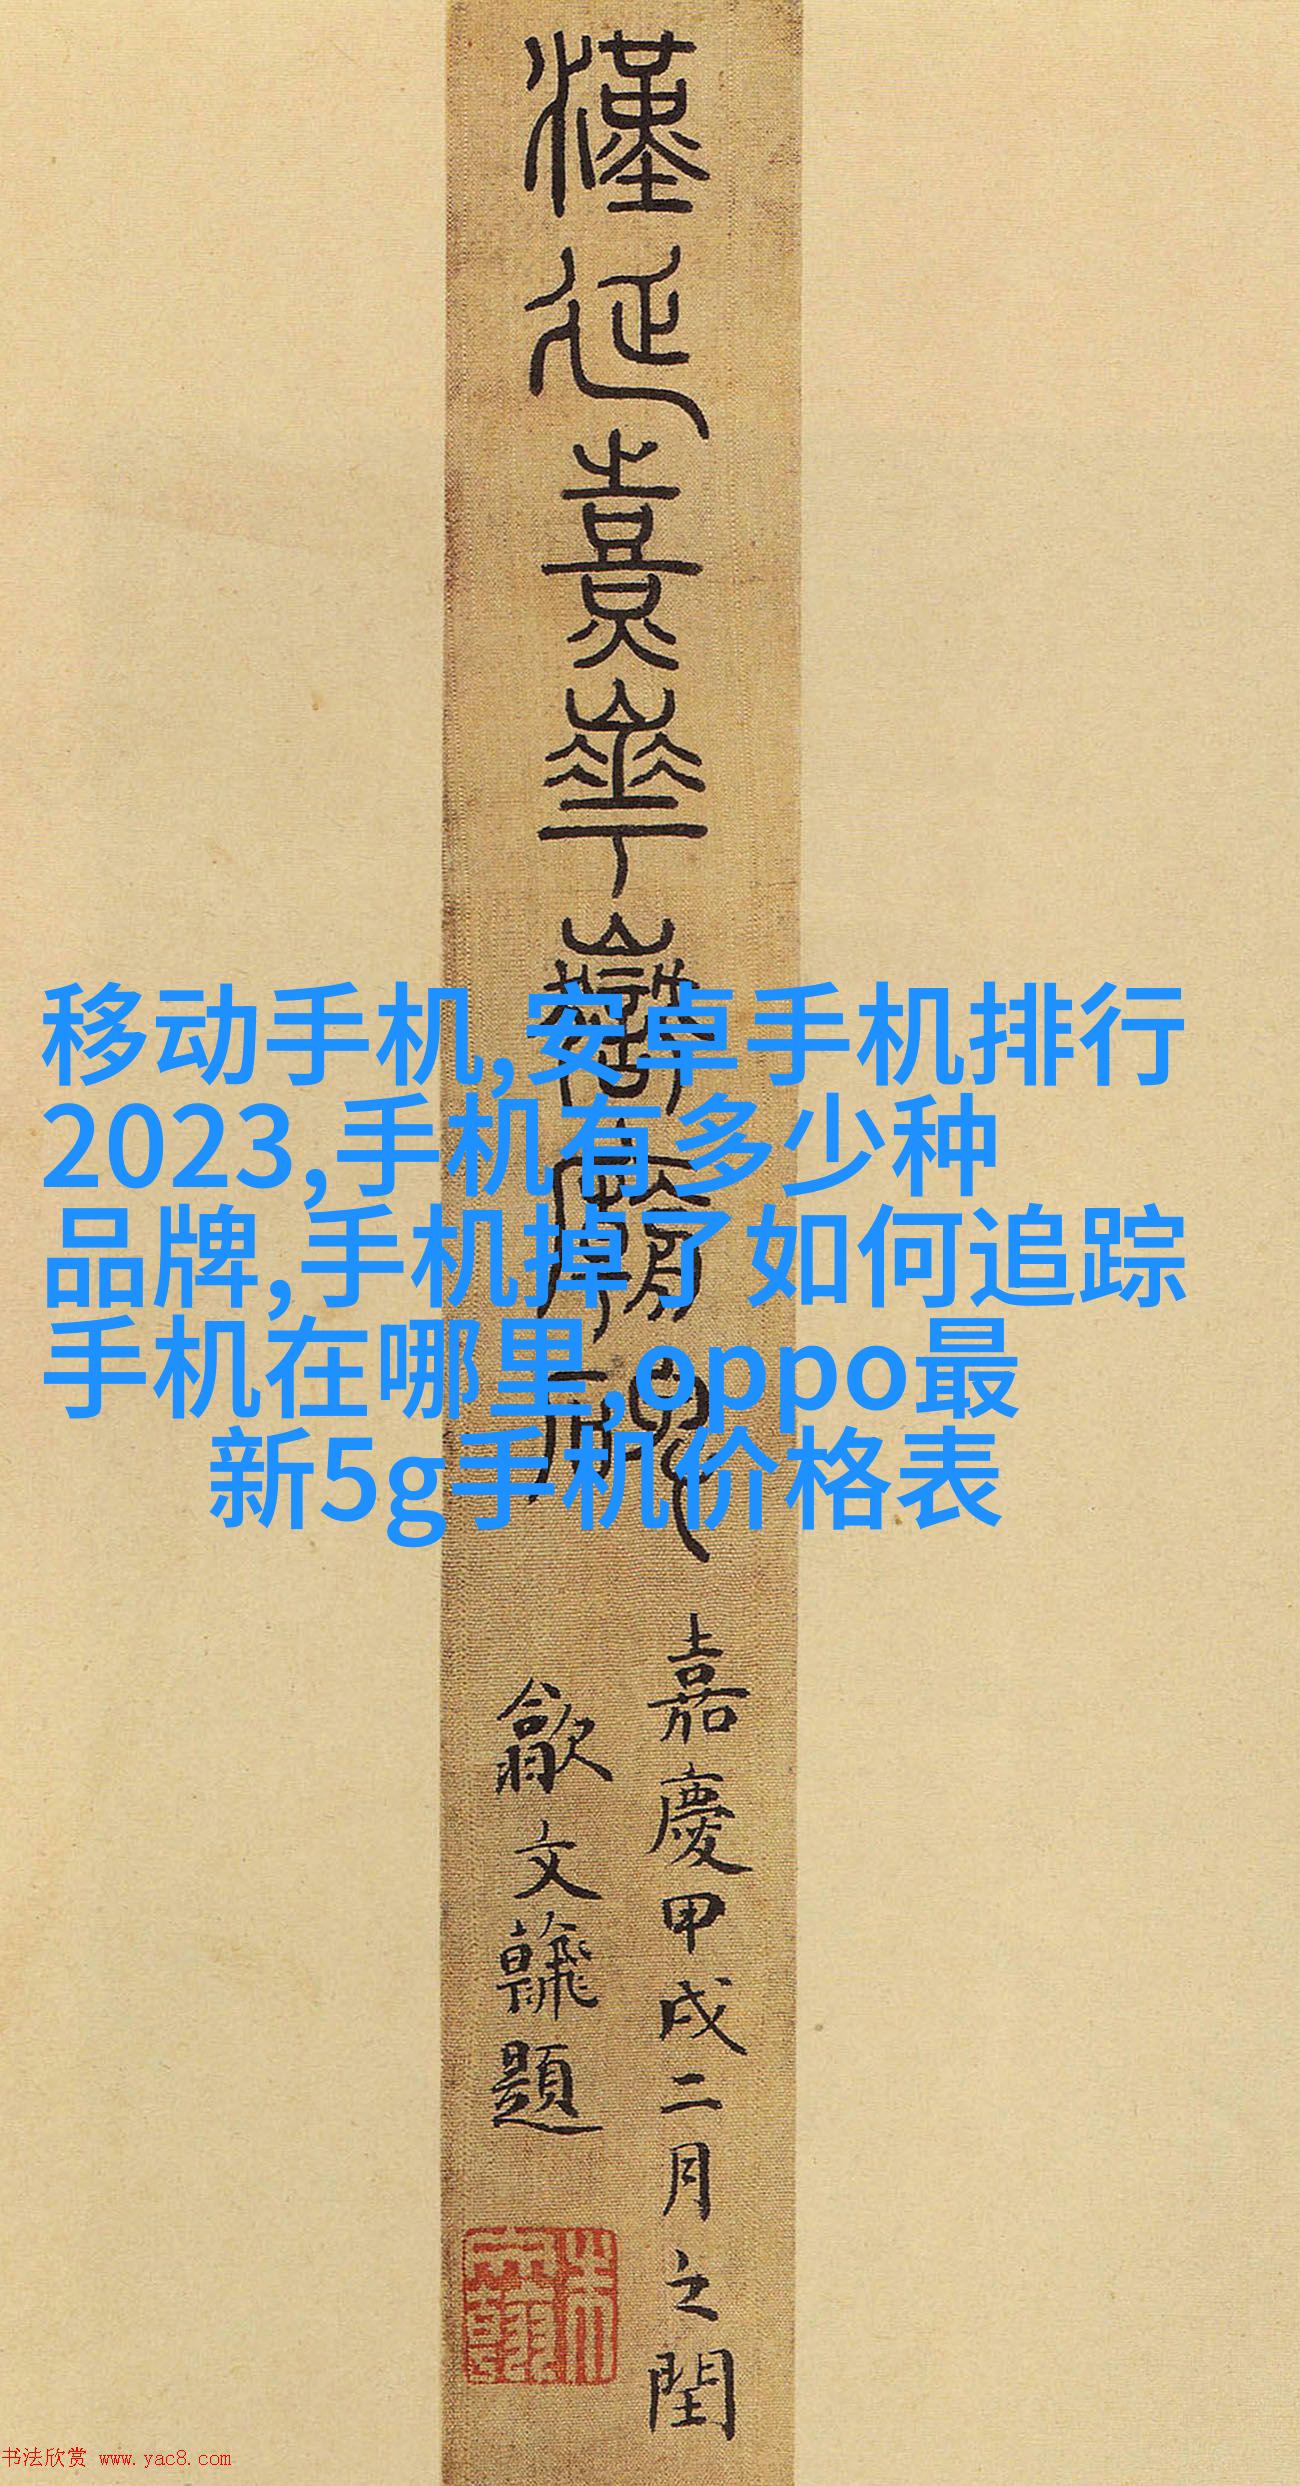 漢延熹華嶽廟碑
嘉慶甲戌二月之閏
歙文
題
移动手机,安卓手机排行
2023,手机有多少种
品牌,手机掉了如何追踪
手机在哪里,oppo最
新5g手机价格表
书法欣赏 www.yac8.com